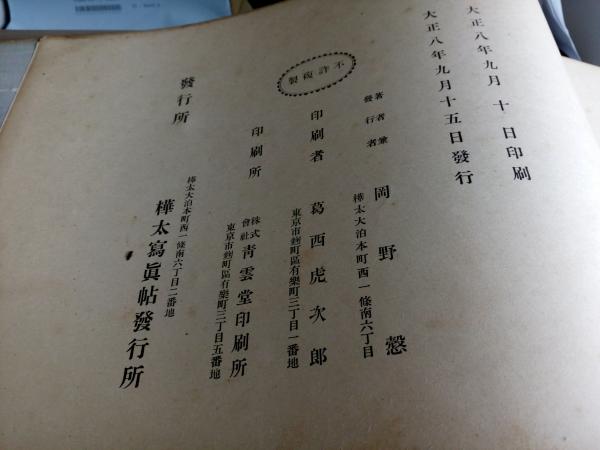 大正八年九月十日印刷
大正八年九月十五日發行
不許複製
著者兼
發行者
岡野愨
樺太大泊本町西一條南六丁目
印刷者 葛西虎次郎
東京市麹町區有樂町三丁目一番地
印刷所 株式會社 靑雲堂印刷所
東京市麹町區有樂町三丁目五番地
發行所
樺太大泊本町西一條南六丁目二番地
樺太寫眞帖發行所